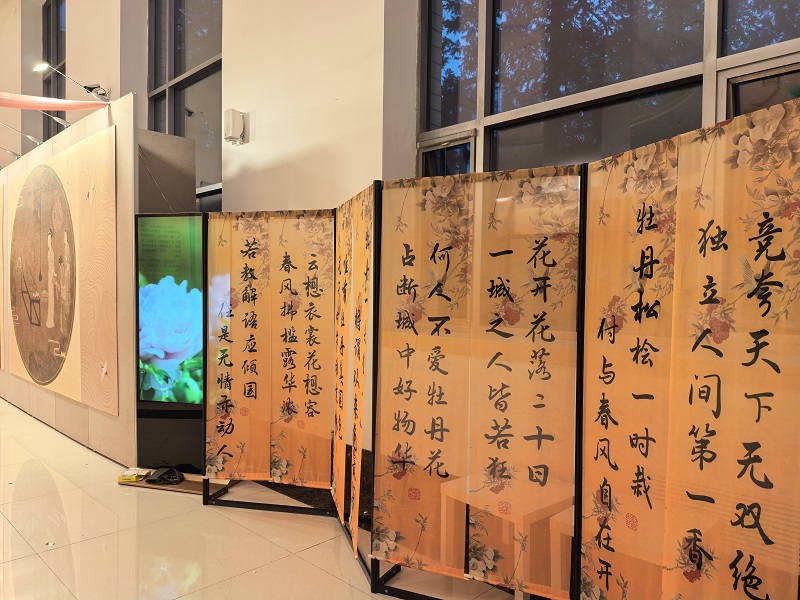 竞夸天下无双绝
独立人间第一香
牡丹松桧一时栽
付与春风自在开
花开花落二十日
一城之人皆若狂
何人不爱牡丹花
占断城中好物华
云想衣裳花想容
春风拂槛露华浓
若教解语应倾国
任是无情亦动人